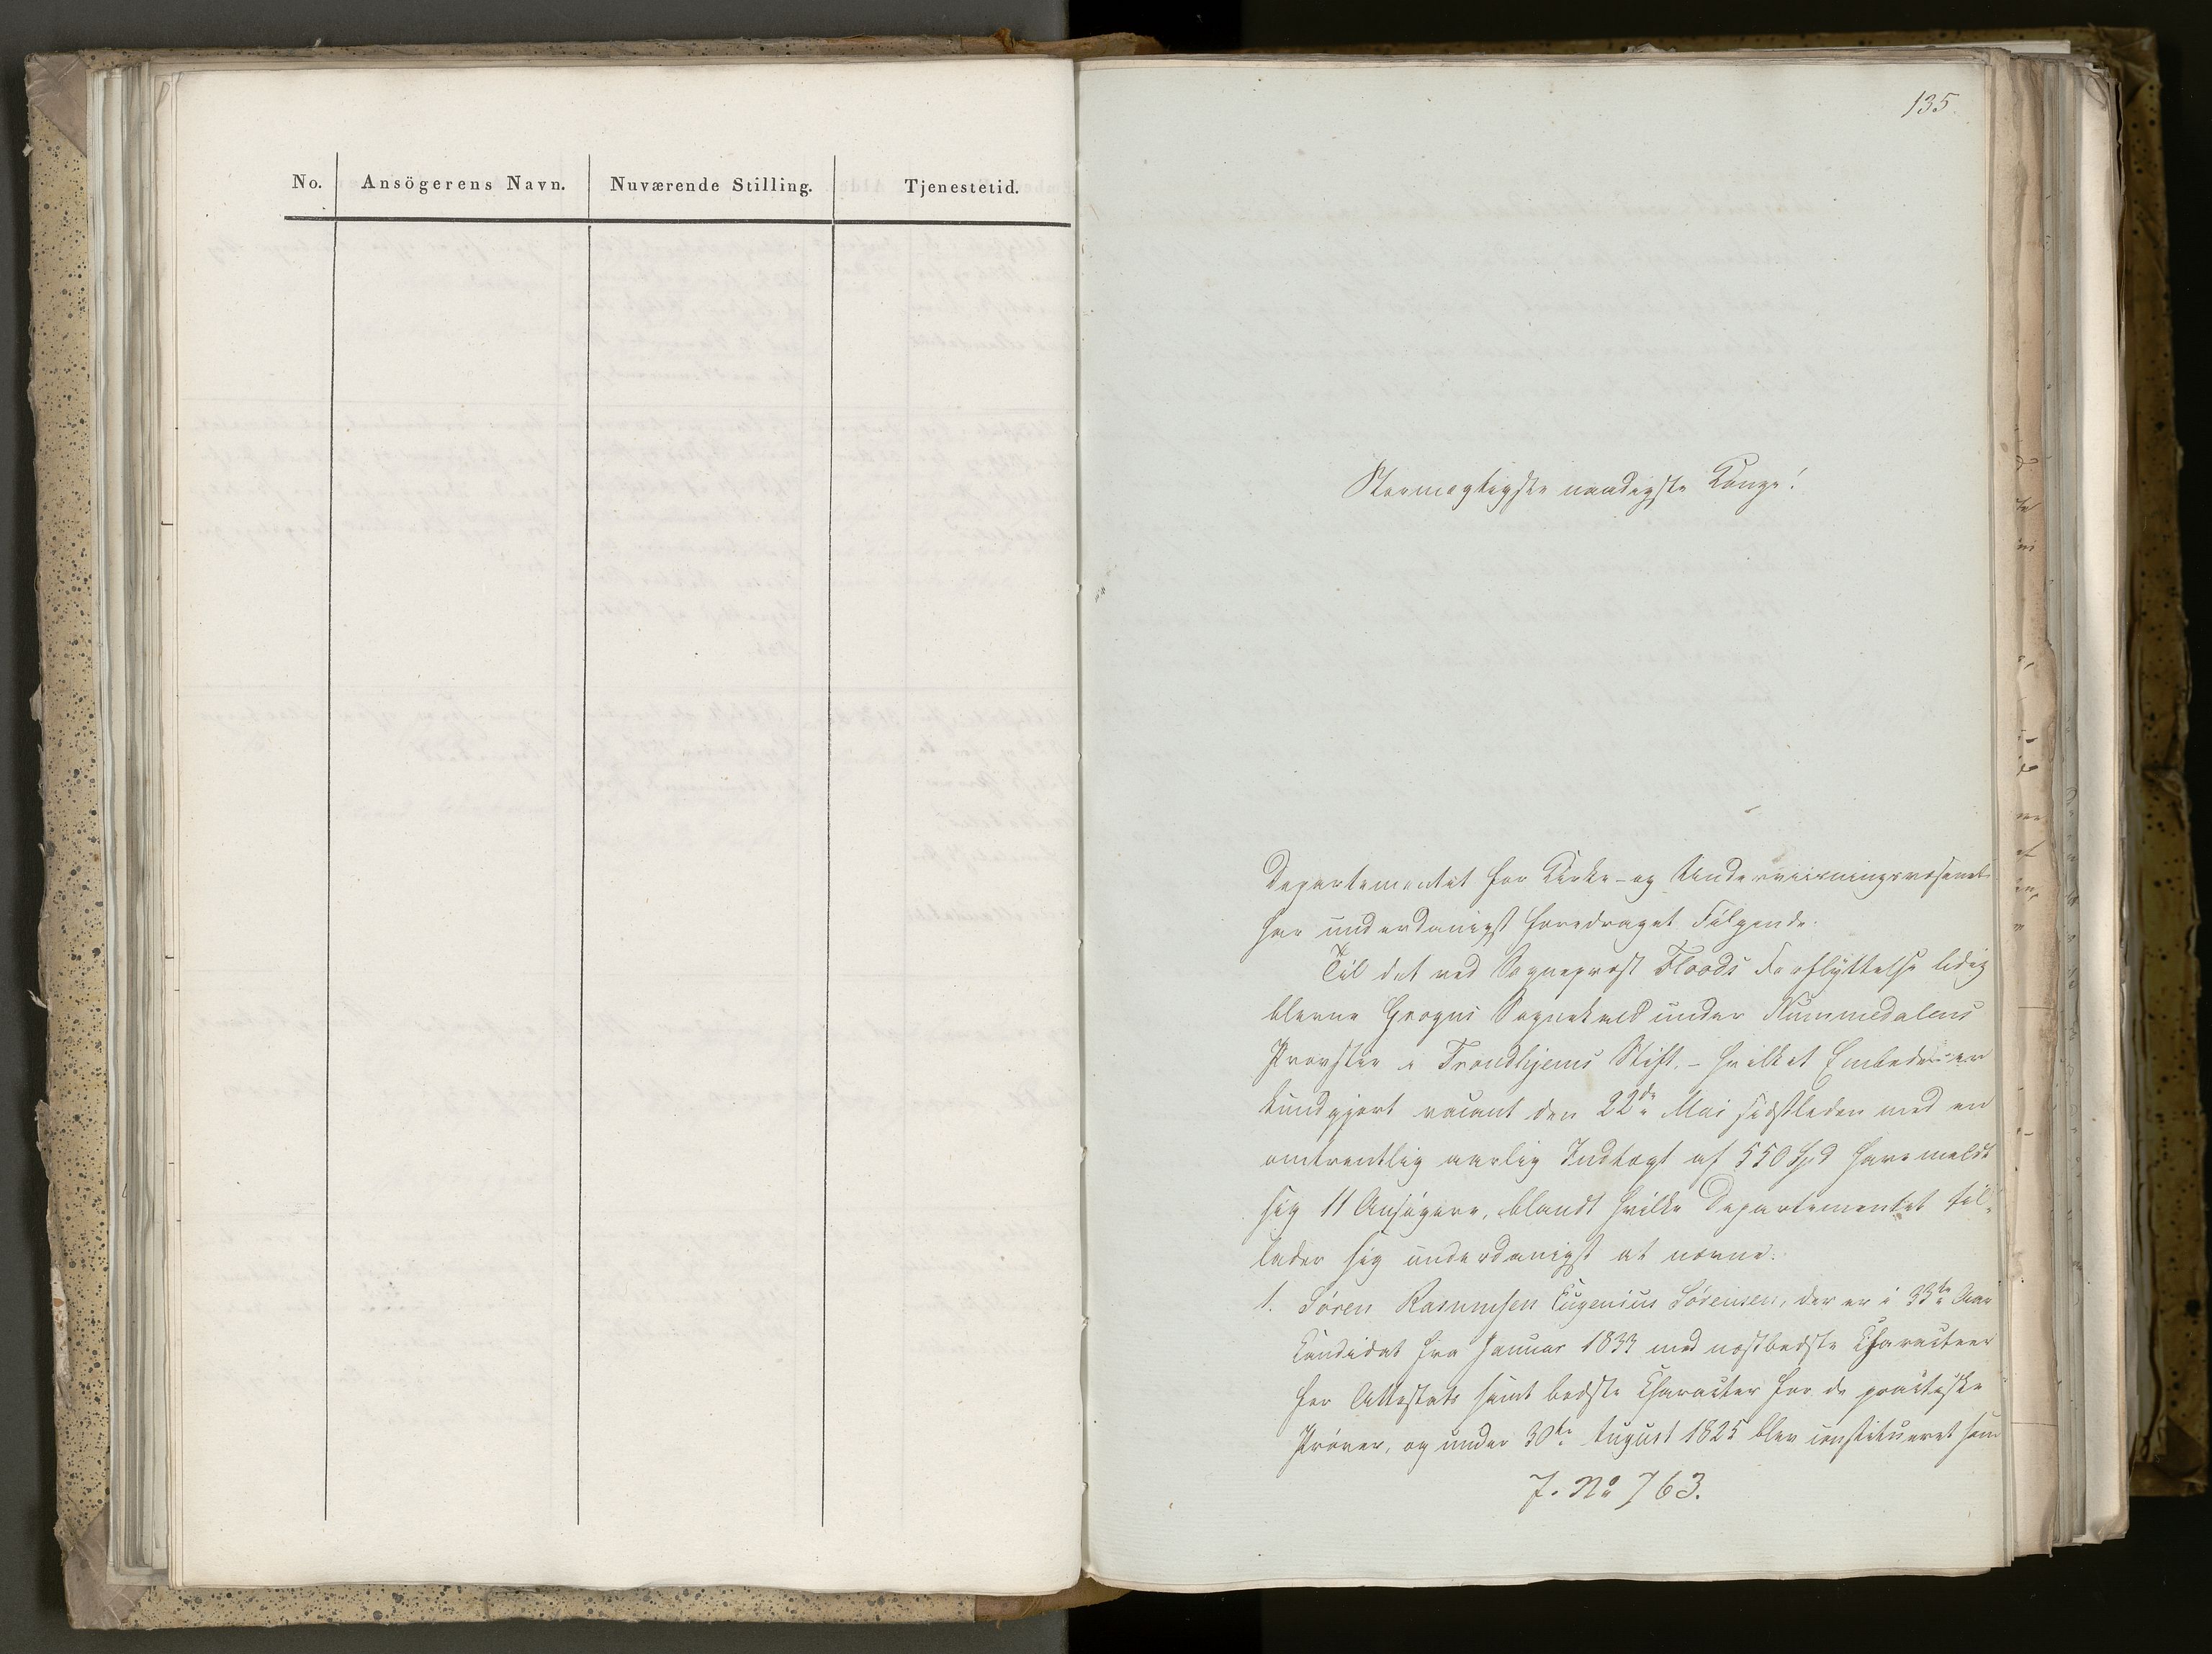 No. Ansögerens Navn. Nuværende Stilling. Tjenestetid.
135.
Stormægtigste naadigste Konge!
Departementet for Kirke- og Underviisningsvæsenet
har underdanigst foredraget Følgende:
Til det ved Sogneprest Floods Forflyttelse ledig
blevne Grogns Sognekald under Nummedalens
Provstie i Trondhjems Stift, – hvilket Embede er
kundgjort vacant den 22de Mai sidstleden med en
omtrentlig aarlig Indtægt af 550 Spd have meldt
sig 11 Ansøgere, blandt hvilke Departementet til-
lader sig underdanigst at nævne:
1. Sören Rasmusen Eugenius Sörensen, der er i 33te Aar
Candidat fra Januar 1833 med næstbedste Characteer
for Attestats samt bedste Character for de practiske
Prøver, og under 30te August 1825 blev constitueret som
J. No 763.